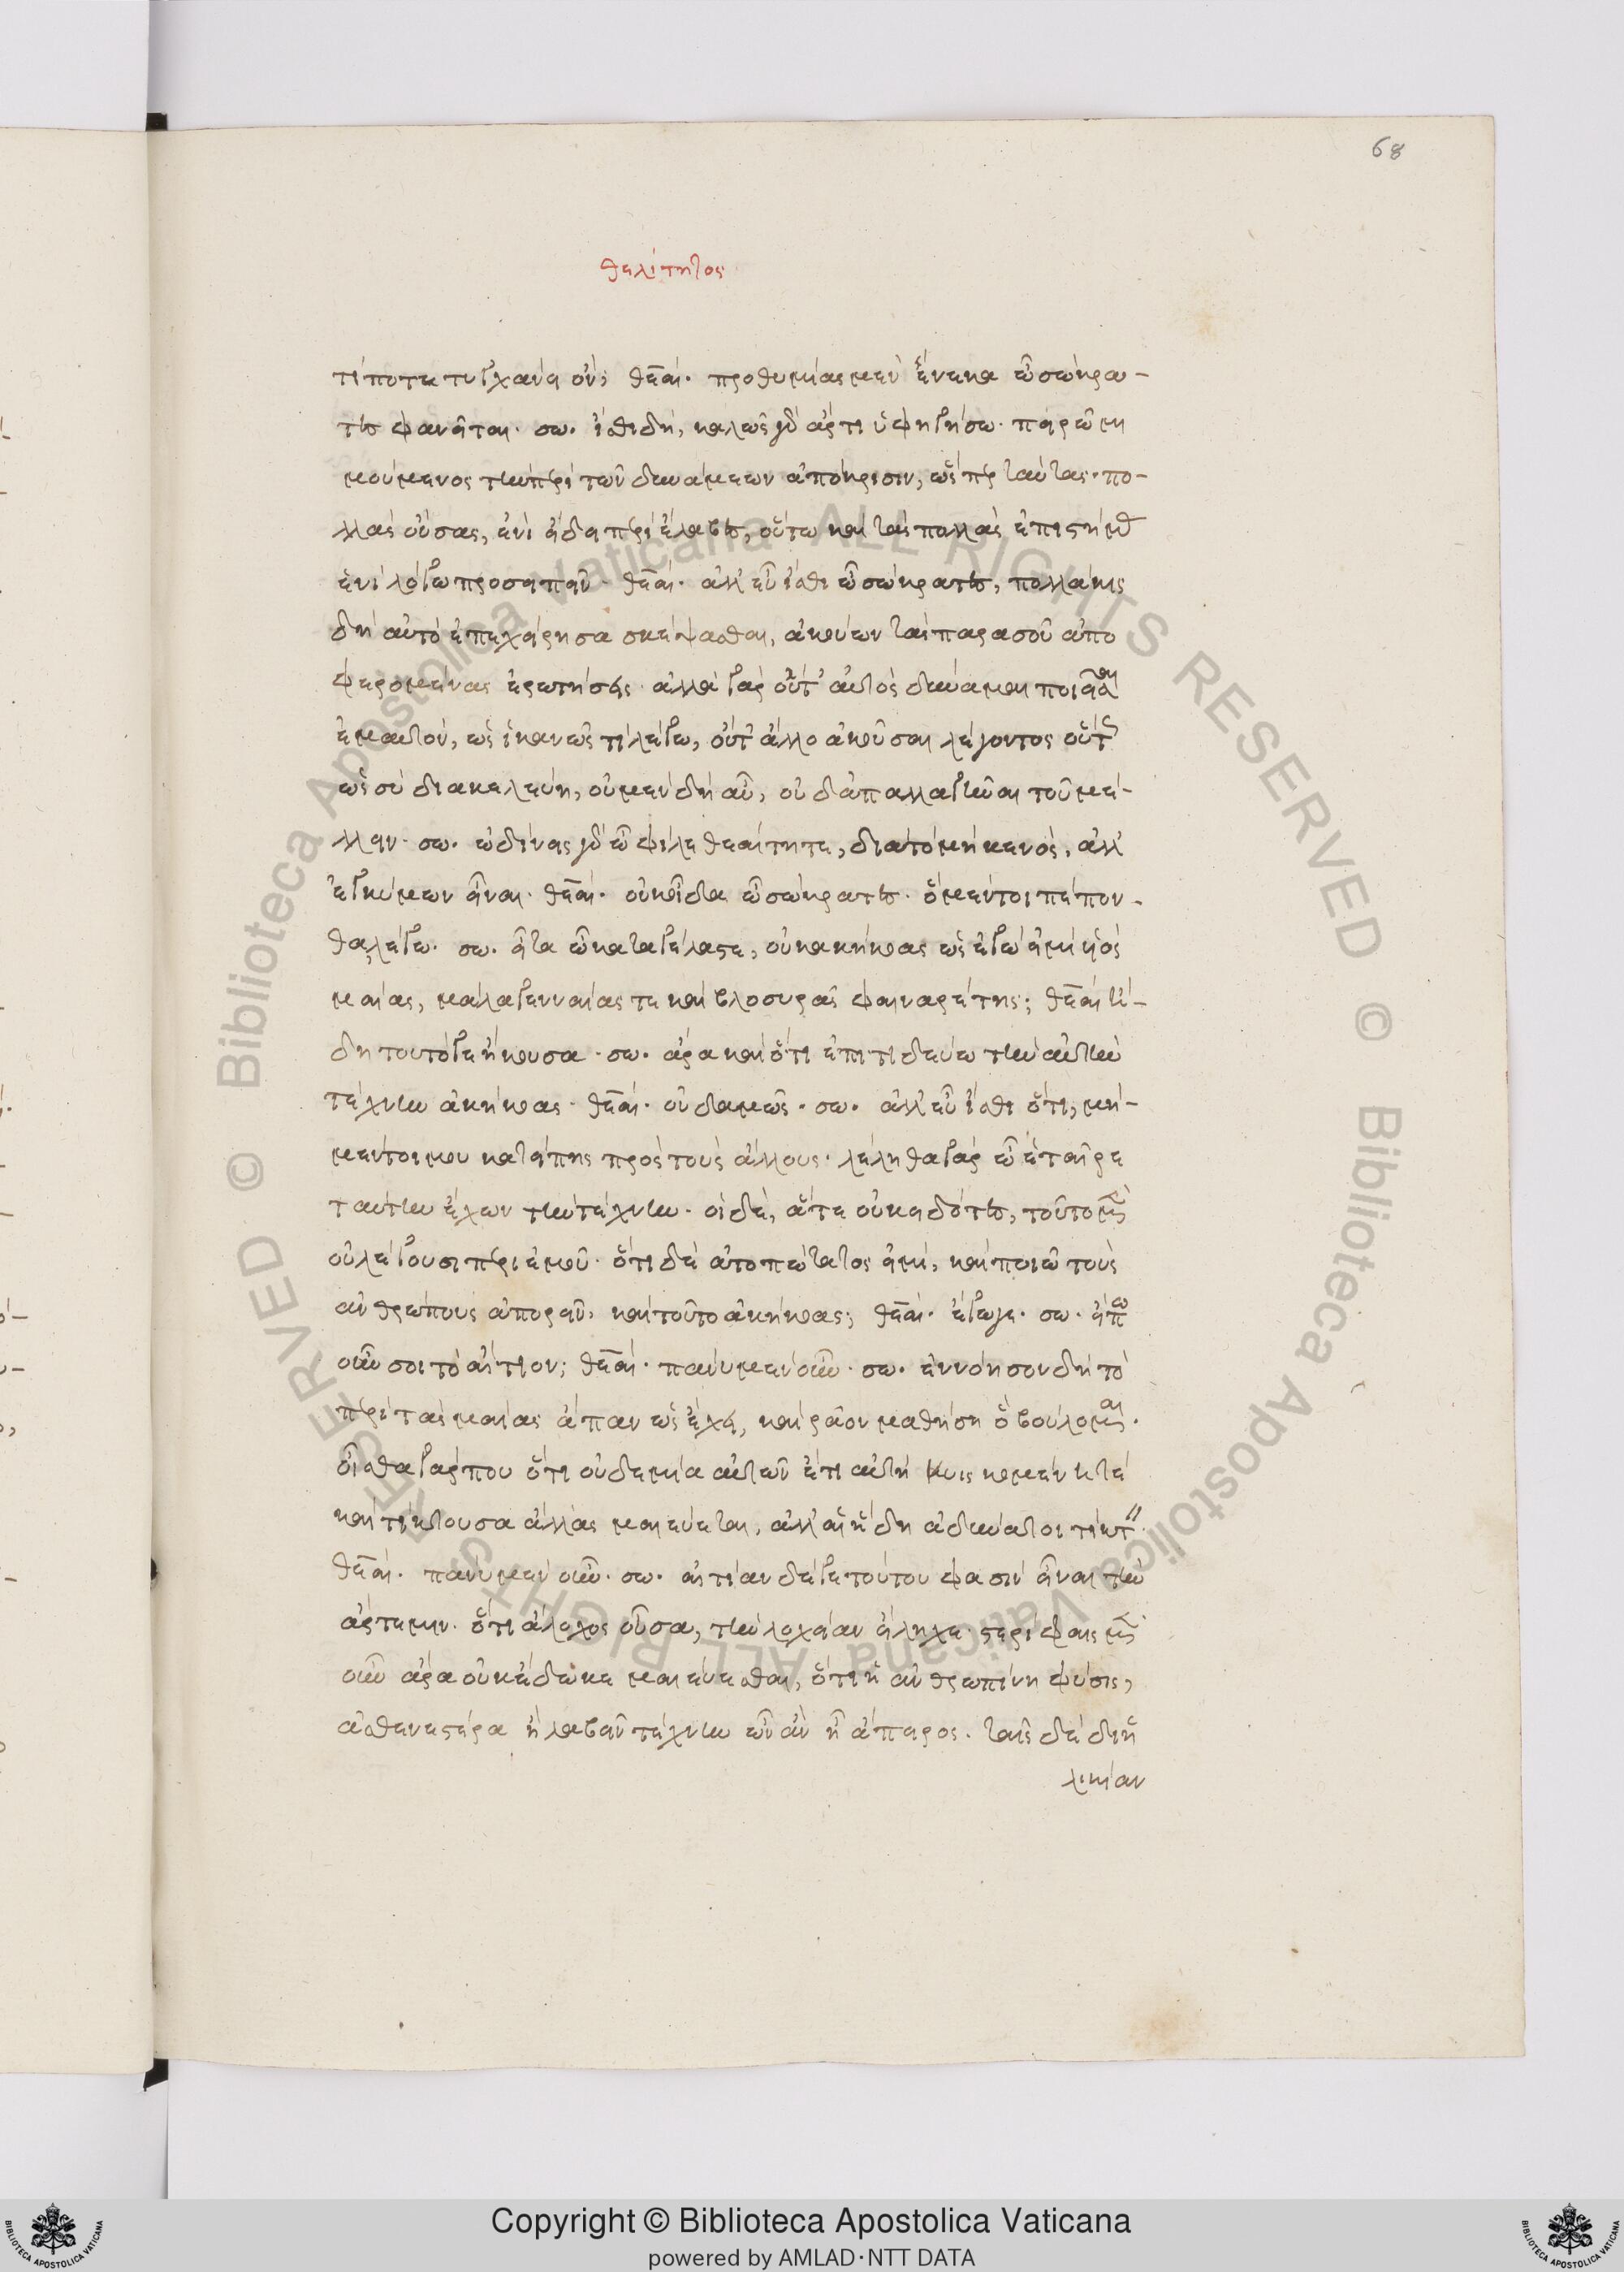 68
θεαίτητος
τί ποτε τυγχάνει ὄν; θεαί. προθυμίας μὲν ἕνεκα ὦ σώκρα-
τες φανεῖται. σω. ἴθι δὴ, καλῶς γὰρ ἄρτι ὑφηγήσω. πειρῶ μι
μούμενος τὴν περὶ τῶν δυνάμεων ἀπόκρισιν, ὥσπερ ταύτας πο-
λλὰς οὔσας, ἑνὶ εἴδει περιέλαβες, οὕτω καὶ τὰς πολλὰς ἐπιστήμ
ἑνὶ λόγω προσειπεῖν. θεαί. ἀλλ' εὖ ἴσθι ὦ σώκρατες, πολλάκις
δὴ αὐτὸ ἐπεχείρησα σκέψασθαι, ἀκούων τὰς παρὰ σοῦ ἀπο
φερομένας ἐρωτήσεις. ἀλλὰ γὰρ οὔτ' αὐτὸς δύναμαι πεῖσαι
ἐμαυτὸν, ὡς ἱκανῶς τι λέγω, οὔτ' ἄλλο ἀκοῦσαι λέγοντος οὕτως
ὡς σὺ διακελεύη, οὐ μὲν δὴ αὖ, οὐδ' ἀπαλλαγῆναι τοῦ μέ-
λλειν. σω. ὠδίνεις γὰρ ὦ φίλε θεαίτητε, διὰ τὸ μὴ κενὸς, ἀλλ'
ἐγκύμων εἶναι. θεαί. οὐκ οἶδα ὦ σώκρατες. ὃ μέντοι πέπον-
θα, λέγω. σω. εἶτα ὦ καταγέλαστε, οὐκ ἀκήκοας ὡς ἐγώ εἰμι ὑὸς
μαίας, μάλα γενναίας τε καὶ βλοσυρᾶς φαιναρέτης; θεαί. ἤ-
δη τοῦτό γε ἤκουσα. σω. ἆρα καὶ ὅτι ἐπιτιδεύω τὴν αὐτὴν
τέχνην ἀκήκοας. θεαί. οὐδαμῶς. σω. ἀλλ' εὖ ἴσθι ὅτι, μή-
μέντοι μου κατείπης πρὸς τοὺς ἄλλους. λέληθα γὰρ ὦ ἑταῖρε
ταύτην ἔχων τὴν τέχνην. οἱ δὲ, ἅτε οὐκ εἰδότες, τοῦτο μὲν
οὐ λέγουσι περὶ ἐμοῦ. ὅτι δὲ ἀτοπώτατος εἰμὶ, καὶ ποιῶ τοὺς
ἀνθρώπους ἀπορεῖν, καὶ τοῦτο ἀκήκοας; θεαί. ἔγωγε. σω. εἴπω
οὖν σοι τὸ αἴτιον; θεαί. πάνυ μὲν οὖν. σω. ἐννόησον δὴ τὸ
περὶ τὰς μαίας ἅπαν ὡς ἔχει, καὶ ῥᾶον μαθήση ὃ βούλομαι.
οἶσθα γάρ που ὅτι οὐδεμία αὐτῶν ἔτι αὐτὴ κυισκομένη τέ
καὶ τίκτουσα ἄλλας μαιεύεται, ἀλλ' αἱ ἤδη ἀδύνατοι τίκτ
θεαί. πάνυ μὲν οὖν. σω. αἰτίαν δέ γε τούτου φασὶν εἶναι τὴν
ἄρτεμιν. ὅτι ἄλοχος οὖσα, τὴν λοχείαν εἴληχε. στερίφαις μὲν
οὖν ἄρα οὐκ ἔδωκε μαιεύεσθαι, ὅτι ἡ ἀνθρωπίνη φύσις,
ἀσθενεστέρα ἢ λαβεῖν τέχνην ὧν ἂν ἦ ἄπειρος. ταῖς δὲ δι' ἡ
λικίαν
Copyright © Biblioteca Apostolica Vaticana
powered by AMLAD·NTT DATA